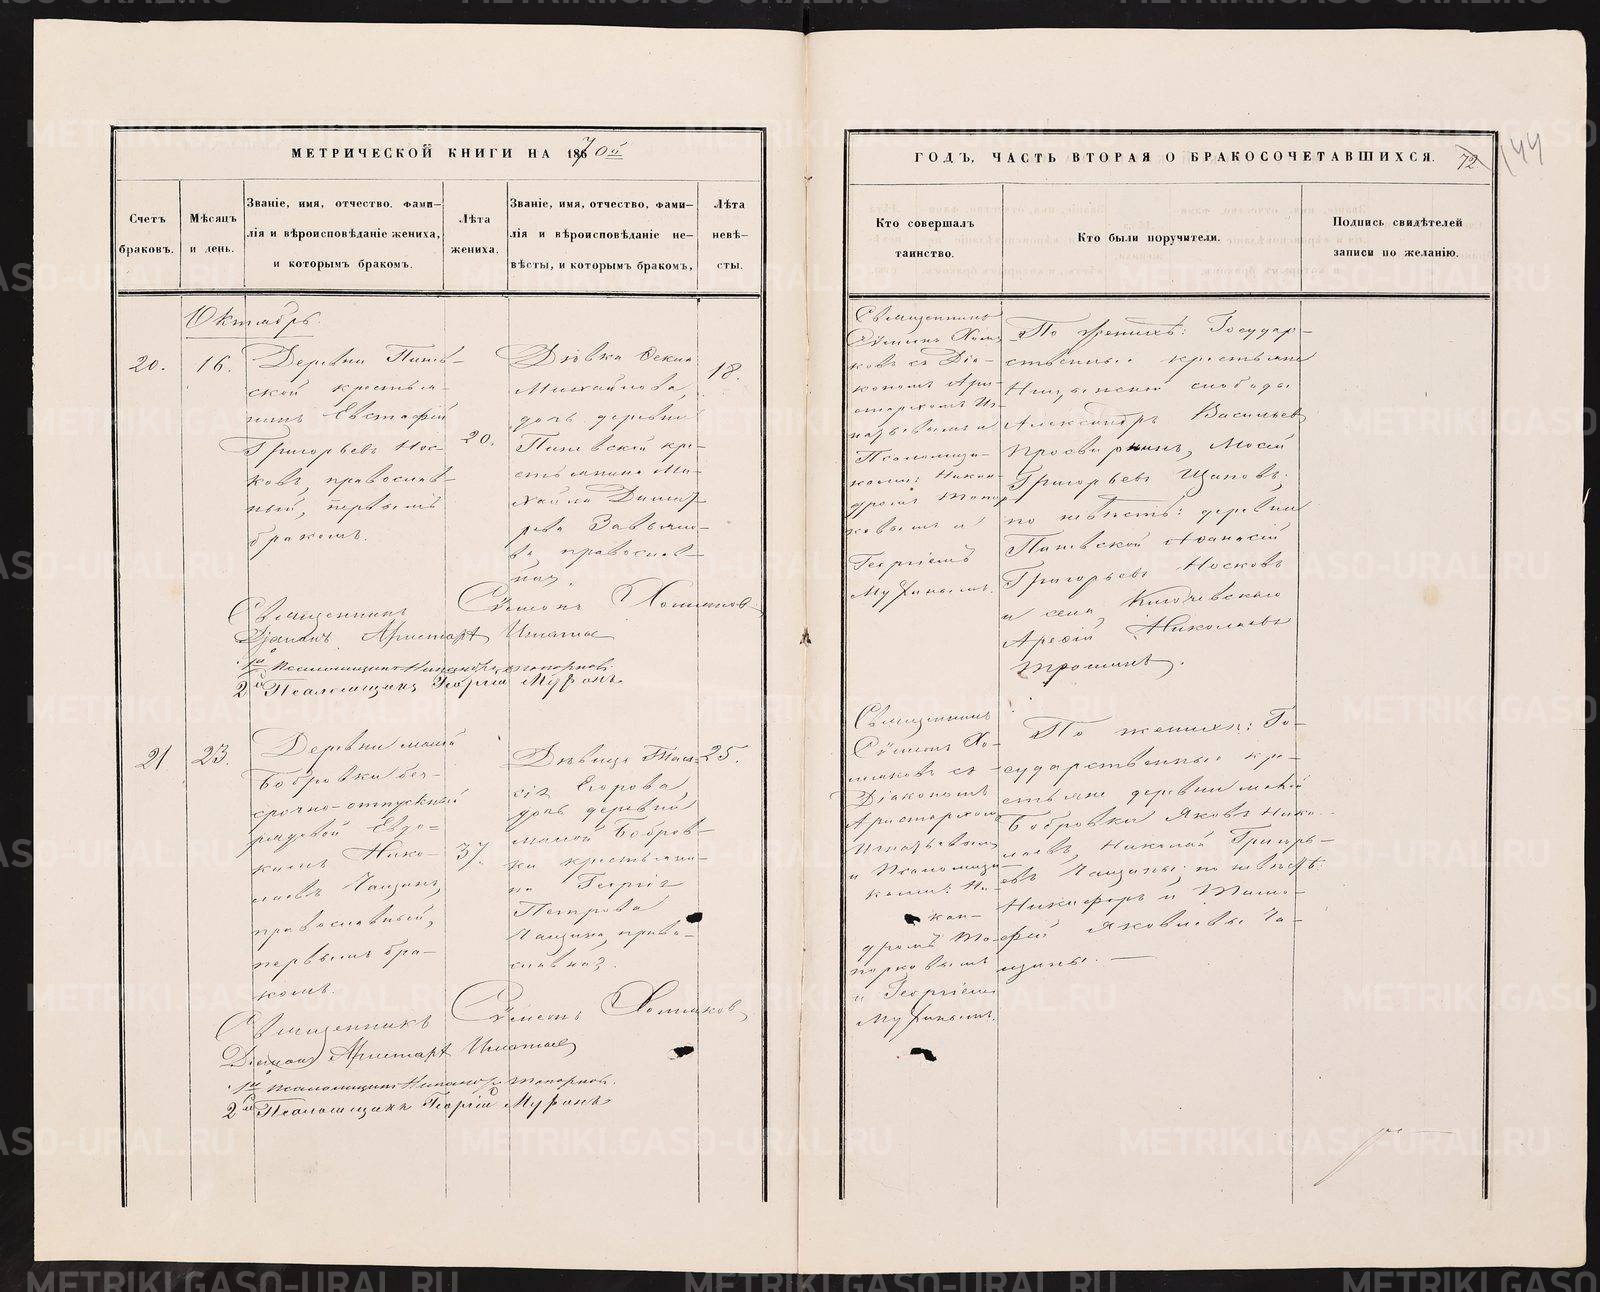 МЕТРИЧЕСКОЙ КНИГИ НА 1870й
Счетъ браковъ.
Мѣсяцъ и день.
Званіе, имя, отчество, фами-
лія и вѣроисповѣданіе жениха,
и которымъ бракомъ.
Лѣта жениха.
Званіе, имя, отчество, фами-
лія и вѣроисповѣданіе не-
вѣсты, и которымъ бракомъ,
Лѣта невѣ-
сты.
Октябрь.
20.
16.
Деревни
ской крестья-
нинъ Евстафій
Григорьевъ Нос-
ковъ, православ-
ный, первымъ
бракомъ.
20.
Дѣвка
Михайлова
дочь деревни
кре-
стьянина Ми-
хайла Димит-
ріева Завьяло-
ва православ-
ная.
18.
Священникъ Сѵмеонъ Хомяковъ
Діаконъ Аристархъ
1й Псаломщикъ Никандръ Топорковъ
2й Псаломщикъ Георгій
21
23.
Деревни малой
Бобровки без-
срочно-отпускный
рядовой Евдо-
кимъ Нико-
лаевъ Чащинъ,
православный,
первымъ бра-
комъ.
37.
Дѣвица Таи-
сія Егорова,
дочь деревни
малой Бобров-
ки крестьяни-
на Георгія
Петрова
Чащина, право-
славная.
25.
Священникъ Сѵмеонъ Хомяковъ
Діаконъ Аристархъ
1й Псаломщикъ Никандръ Топорковъ.
2й Псаломщикъ Георгій
ГОДЪ, ЧАСТЬ ВТОРАЯ О БРАКОСОЧЕТАВШИХСЯ.
72
144
Кто совершалъ
таинство.
Кто были поручители.
Подпись свидѣтелей
записи по желанію.
Священникъ
Сѵмеонъ Хомя-
ковъ съ Діа-
кономъ Ари-
стархомъ
и
Псаломщи-
ками: Никан-
дромъ Топор-
ковымъ и
Георгіемъ
По женихѣ: Государ-
ственные крестьяне
слободы
Александръ Васильевъ
Просвирнинъ, Мосей
Григорьевъ
по невѣстѣ: деревни
Аѳанасій
Григорьевъ Носковъ
и села Ключевскаго
Николаевъ
Трошинъ.
Священникъ
Сѵмеонъ Хо-
мяковъ съ
Діакономъ
Аристархомъ
и Псаломщи-
ками: Ни-
кан-
дромъ То-
порковымъ
и Георгіемъ
По женихѣ: Го-
сударственные кре-
стьяне деревни малой
Бобровки Яковъ Нико-
лаевъ, Николай Григорь-
евъ Чащины; по невѣстѣ:
Никифоръ и Тимо-
фей Яковлевы Ча-
щины.
METRIKI.GASO-URAL.RU